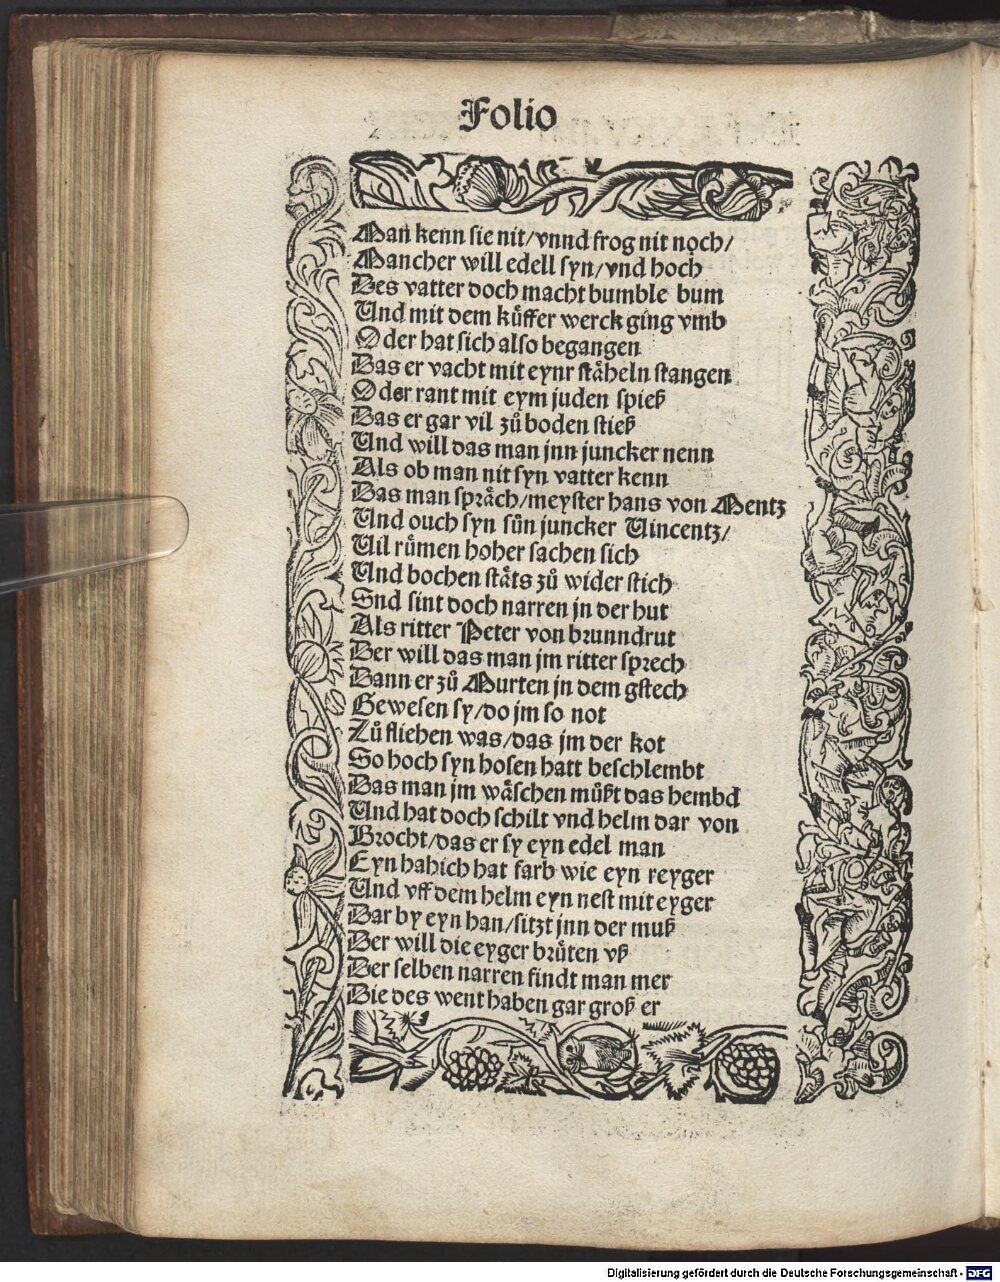 Folio
Man kenn sie nit/vnnd frog nit noch/
Mancher will edell syn/vnd hoch
Des vatter doch macht bumble bum
Und mit dem kuͤffer werck ging vmb
Oder hat sich also begangen
Das er vacht mit eynr staͤheln stangen
Oder rant mit eym juden spieß
Das er gar vil zuͦ boden stieß
Und will das man jnn juncker nenn
Als ob man nit syn vatter kenn
Das man spraͤch/meyster hans von Mentz
Und ouch syn suͤn juncker Uincentz/
Uil ruͤmen hoher sachen sich
Und bochen staͤts zuͦ wider stich
Snd sint doch narren jn der hut
Als ritter Peter von brunndrut
Der will das man jm ritter sprech
Dann er zuͦ Murten jn dem gstech
Gewesen sy/do jm so not
Zuͦ fliehen was/das jm der kot
So hoch syn hosen hatt beschlembt
Das man jm waͤschen muͤßt das hembd
Und hat doch schilt vnd helm dar von
Brocht/das er sy eyn edel man
Eyn habich hat farb wie eyn reyger
Und vff dem helm eyn nest mit eyger
Dar by eyn han/sitzt jnn der muß
Der will die eyger bruͤten vß
Der selben narren findt man mer
Die des went haben gar groß er
Digitalisierung gefördert durch die Deutsche Forschungsgemeinschaft - DFG